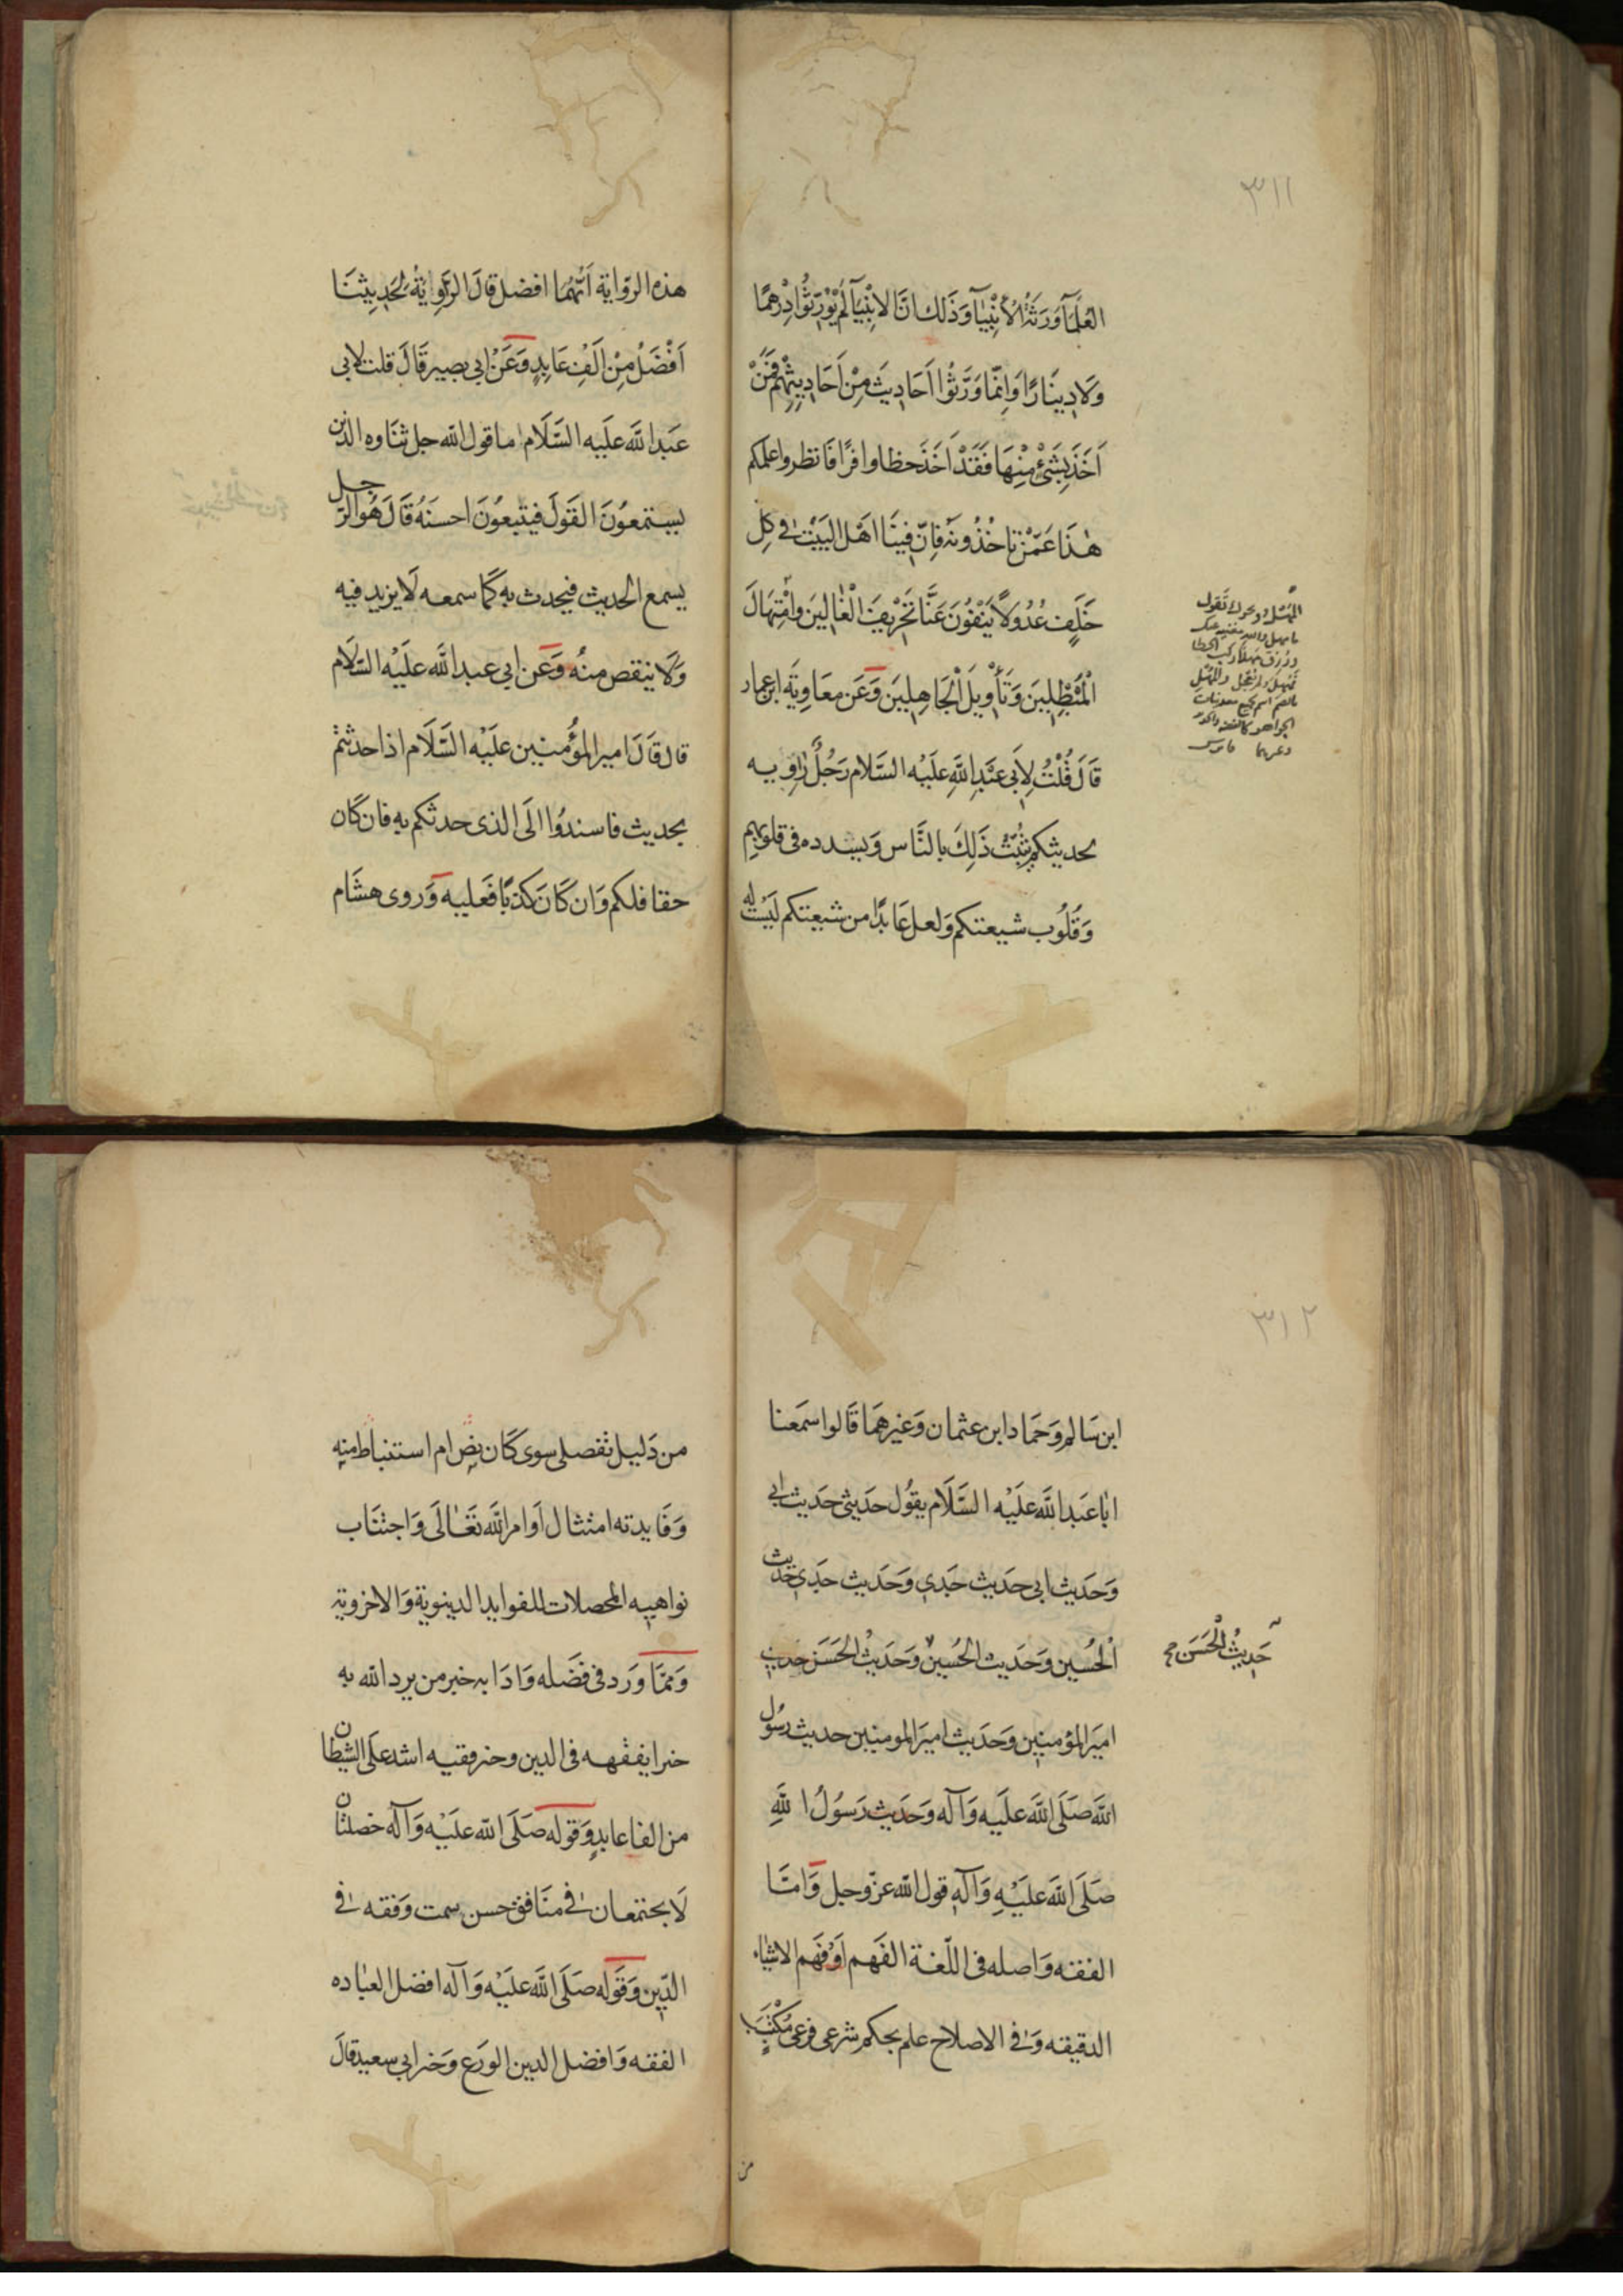 ٣١١
العُلمَآء وَرَثَةُ الأنْبِيَآء وَذَلك انَّ الانْبِيَآء لَمْ يُوَرِّثُوا دِرْهمًا
وَلَا دِينَارًا وَانَّمَا وَرَّثُوا اَحَادِيثَ مِنْ اَحَادِيثِهِمْ فَمَنْ
اَخَذَ بِشَئْ مِنْهَا فَقَدْ اَخَذَ حظا وافرًا فَانظروا علمكم
هٰذَا عَمَّنْ تَاخُذُونَهُ فَاِنّ فِينَا اهْلَ البَيْتِ فى كلِ
خَلَفٍ عُدُولاً يَنْفُونَ عَنَّا تَحْرِيفَ الْغَالِينَ وانْتِحَالَ
الْمُبْطِلِينَ وَتَأْوِيلَ الْجَاهِلِينَ وَعَن معَاوِيَة ابن عمار
قَالَ قُلْتُ لِاَبى عَبْدِ اللَّهِ عَلَيْه السَّلام رَجُلٌ رَاوِيه
لحديثكم يَبُثُّ ذَلِكَ بالنَّاس وَيسدده فى قلوبهم
وَقُلُوب شيعتكم وَلعل عَابدًا من شيعتكم لَيْسَت له
هذه الروَاية اَيّهُما افضل قالَ الرَّاوِيَةُ لِحَدِيثِنَا
اَفْضَلُ مِنْ اَلْفِ عَابِدٍ وَعَنْ ابى بصير قَالَ قلت لابى
عَبد اللَّه علَيه السَّلَام ما قول الله جل ثنَاوه الذين
يستمعُونَ القَولَ فيتبعُونَ احسنَهُ قَالَ هُوَ الرّجل
يسمع الحديث فيحدث به كمَا سمعه لَا يزيد فيه
وَلَا ينقص منهُ وَعَن ابى عبد اللَّه علَيْه السّلَام
قال قَالَ امير المؤمنين علَيْه السَّلَام اذا حدثتم
بحديث فاسندُوا الَى الذى حدثكم به فان كَان
حقا فلكم وَان كَانَ كذبًا فَعليه وَروى هشَام
٣١٢
ابن سَالم وَحَمَاد ابن عثمان وَغيرهمَا قَالوا سَمَعنا
ابَا عَبد اللَّه علَيْه السَّلَام يقُول حَديثى حَديث ابى
وَحَديث ابى حَديث جَدى وَحَديث جَدى حَديث
الْحُسين وَحَديث الحُسين وَحَديْث الحَسَن حديث
حَديْثُ الْحَسَن
اميَر المؤمنين وَحَديث اميَر المومنين حديث رسُول
اللَّه صَلَى اللَّه علَيه وَآله وَحَديث رَسُولُ اللَّهِ
صَلَى اللَّه علَيْهِ وَآلَهِ قول اللّه عزّ وجل وَامَّا
الفقه وَاصله فى اللّغة الفَهم اوْ فَهم الاشيَاء
الدقيقه وَفى الاصلاح علم بحكم شرعى فرعى مُكْتَسَبٍ
من
من دَليل تفصلى سوى كَان نص ام استنباط منه
وَفَايدته امتثال اَوامر اللَّه تَعَالَى وَاجتنَاب
نواهيه المحصلات للفوايد الدينوية وَالاخروية
وَممّا وَرد فى فضَله وَادَابه خبر من يرد اللَّه به
خيرا يفقهه فى الدين وخبر فقيه اشد علَى الشيطان
من الف عابدٍ وَقوله صَلَى اللَّه علَيْه وَآلَه خصلتان
لَا يجتمعان فى منَافق حسن سمت وَفقه فى
الدّين وَقَوله صَلَى اللَّه علَيْه وَآلَه افضل العبَاده
الفقه وَافضل الدين الورَع وَخبر ابى سعيد قالَ